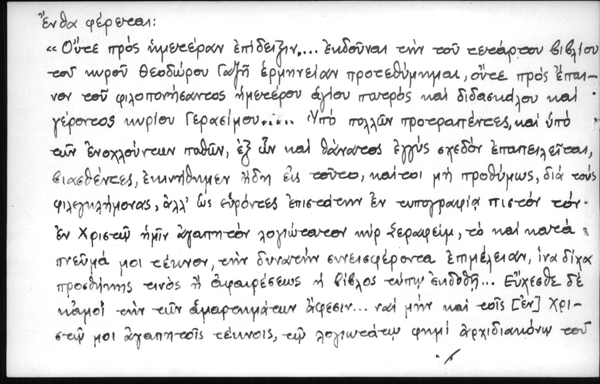 Ἔνθα φέρεται:
«Οὔτε πρὸς ἡμετέραν ἐπίδειξιν... ἐκδοῦναι τὴν τοῦ τετάρτου βιβλίου
τοῦ κυροῦ Θεοδώρου Γαζῆ ἑρμηνείαν προτεθύμημαι, οὔτε πρὸς ἔπαι-
νον τοῦ φιλοπονήσαντος ἡμετέρου ἁγίου πατρὸς καὶ διδασκάλου καὶ
γέροντος κυρίου Γερασίμου..... Ὑπὸ πολλῶν προτραπέντες, καὶ ὑπὸ
τῶν ἐνοχλούντων παθῶν, ἐξ ὧν καὶ θάνατος ἐγγὺς σχεδὸν ἐπαπειλεῖται,
βιασθέντες, ἐκινήθημεν ἤδη εἰς τοῦτο, καίτοι μὴ προθύμως, διὰ τοὺς
φιλεγκλήμονας, ἀλλ' ὡς εὑρόντες ἐπιστάτην ἐν τυπογραφίᾳ πιστὸν τὸν
ἐν Χριστῷ ἡμῖν ἀγαπητὸν λογιώτατον κὺρ Σεραφείμ, τὸ καὶ κατὰ
πνεῦμά μοι τέκνον, τὴν δυνατὴν συνεισφέροντα ἐπιμέλειαν, ἵνα δίχα
προσθήκης τινὸς ἢ ἀφαιρέσεως ἡ βίβλος τύπῳ ἐκδοθῇ... Εὔχεσθε δὲ
κἀμοὶ τὴν τῶν ἁμαρτημάτων ἄφεσιν... ναὶ μὴν καὶ τοῖς [ἐν] Χρι-
στῷ μοι ἀγαπητοῖς τέκνοις, τῷ λογιωτάτῳ φημὶ ἀρχιδιακόνῳ τοῦ
./.